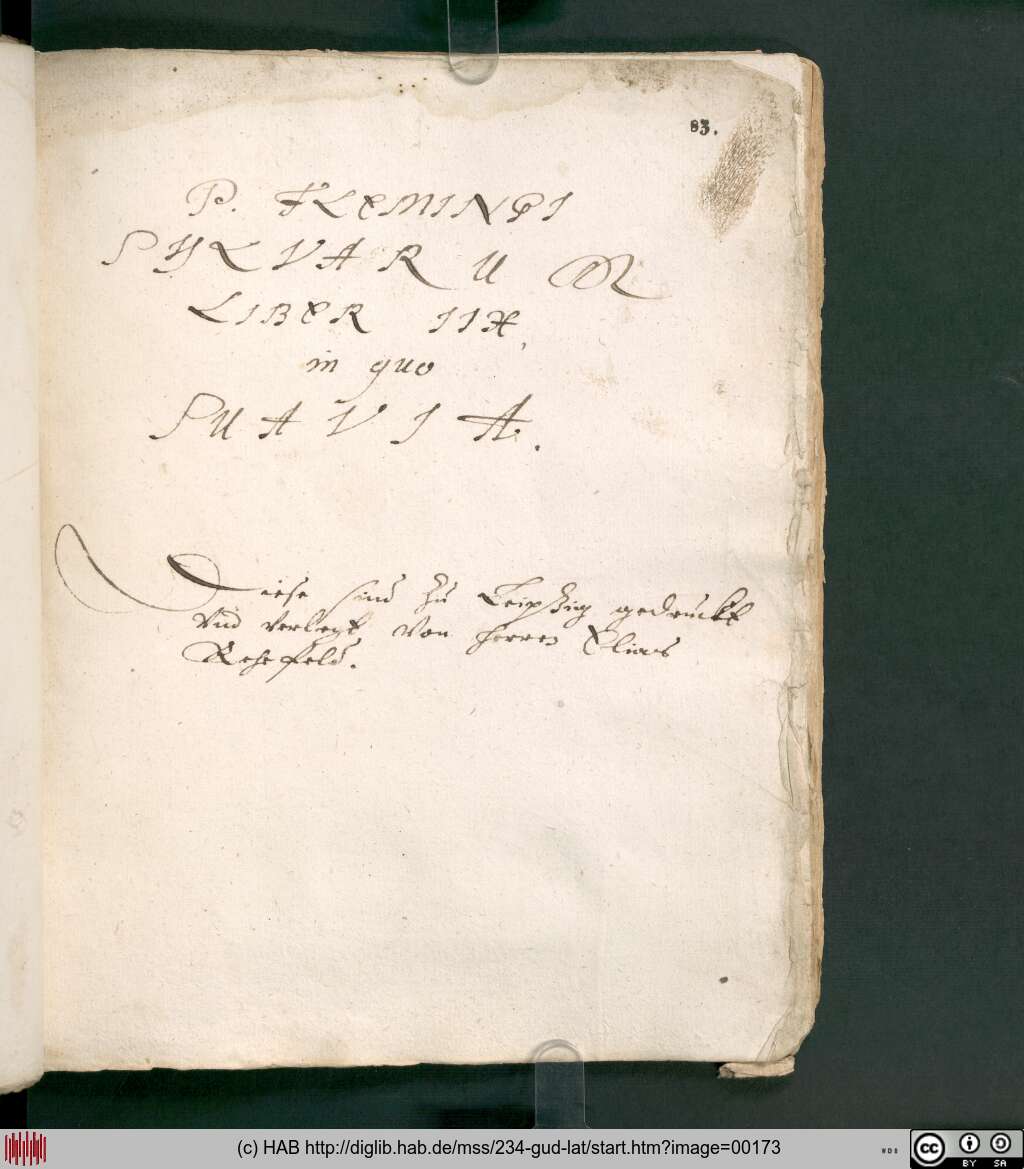 83.
P. FLEMINGI
SYLVARUM
LIBER IIX,
in quo
SUAVIA.
Diese sind zu Leipzig gedruckt
Vnd verlegt Von Herren Elias
Rehefeld.
(c) HAB http://diglib.hab.de/mss/234-gud-lat/start.htm?image=00173
cc BY SA